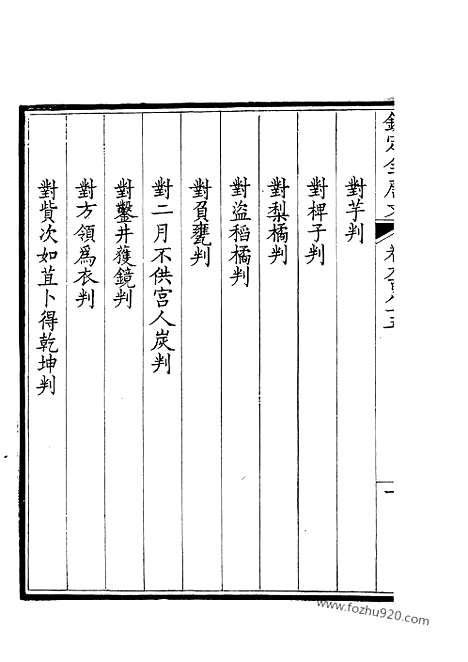 欽定全唐文 卷九百八十五 一
對芋判
對椑子判
對梨橘判
對盜稻橘判
對負甕判
對二月不供宫人炭判
對鑿井獲鏡判
對方領爲衣判
對貲次如苴卜得乾坤判
www.fozhu920.com